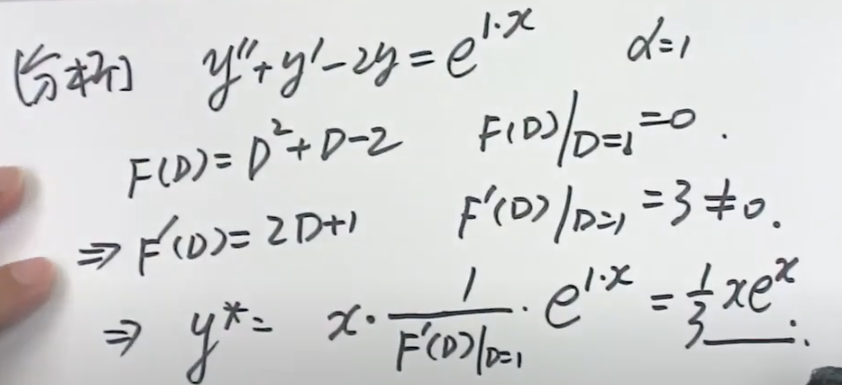 [分析] y''+y'-2y=e^{1·x} α=1
F(D)=D^2+D-2 F(D)|_{D=1}=0.
⇒F'(D)=2D+1 F'(D)|_{D=1}=3≠0.
⇒ y*= x·\frac{1}{F'(D)|_{D=1}}·e^{1·x}=\frac{1}{3}xe^x.